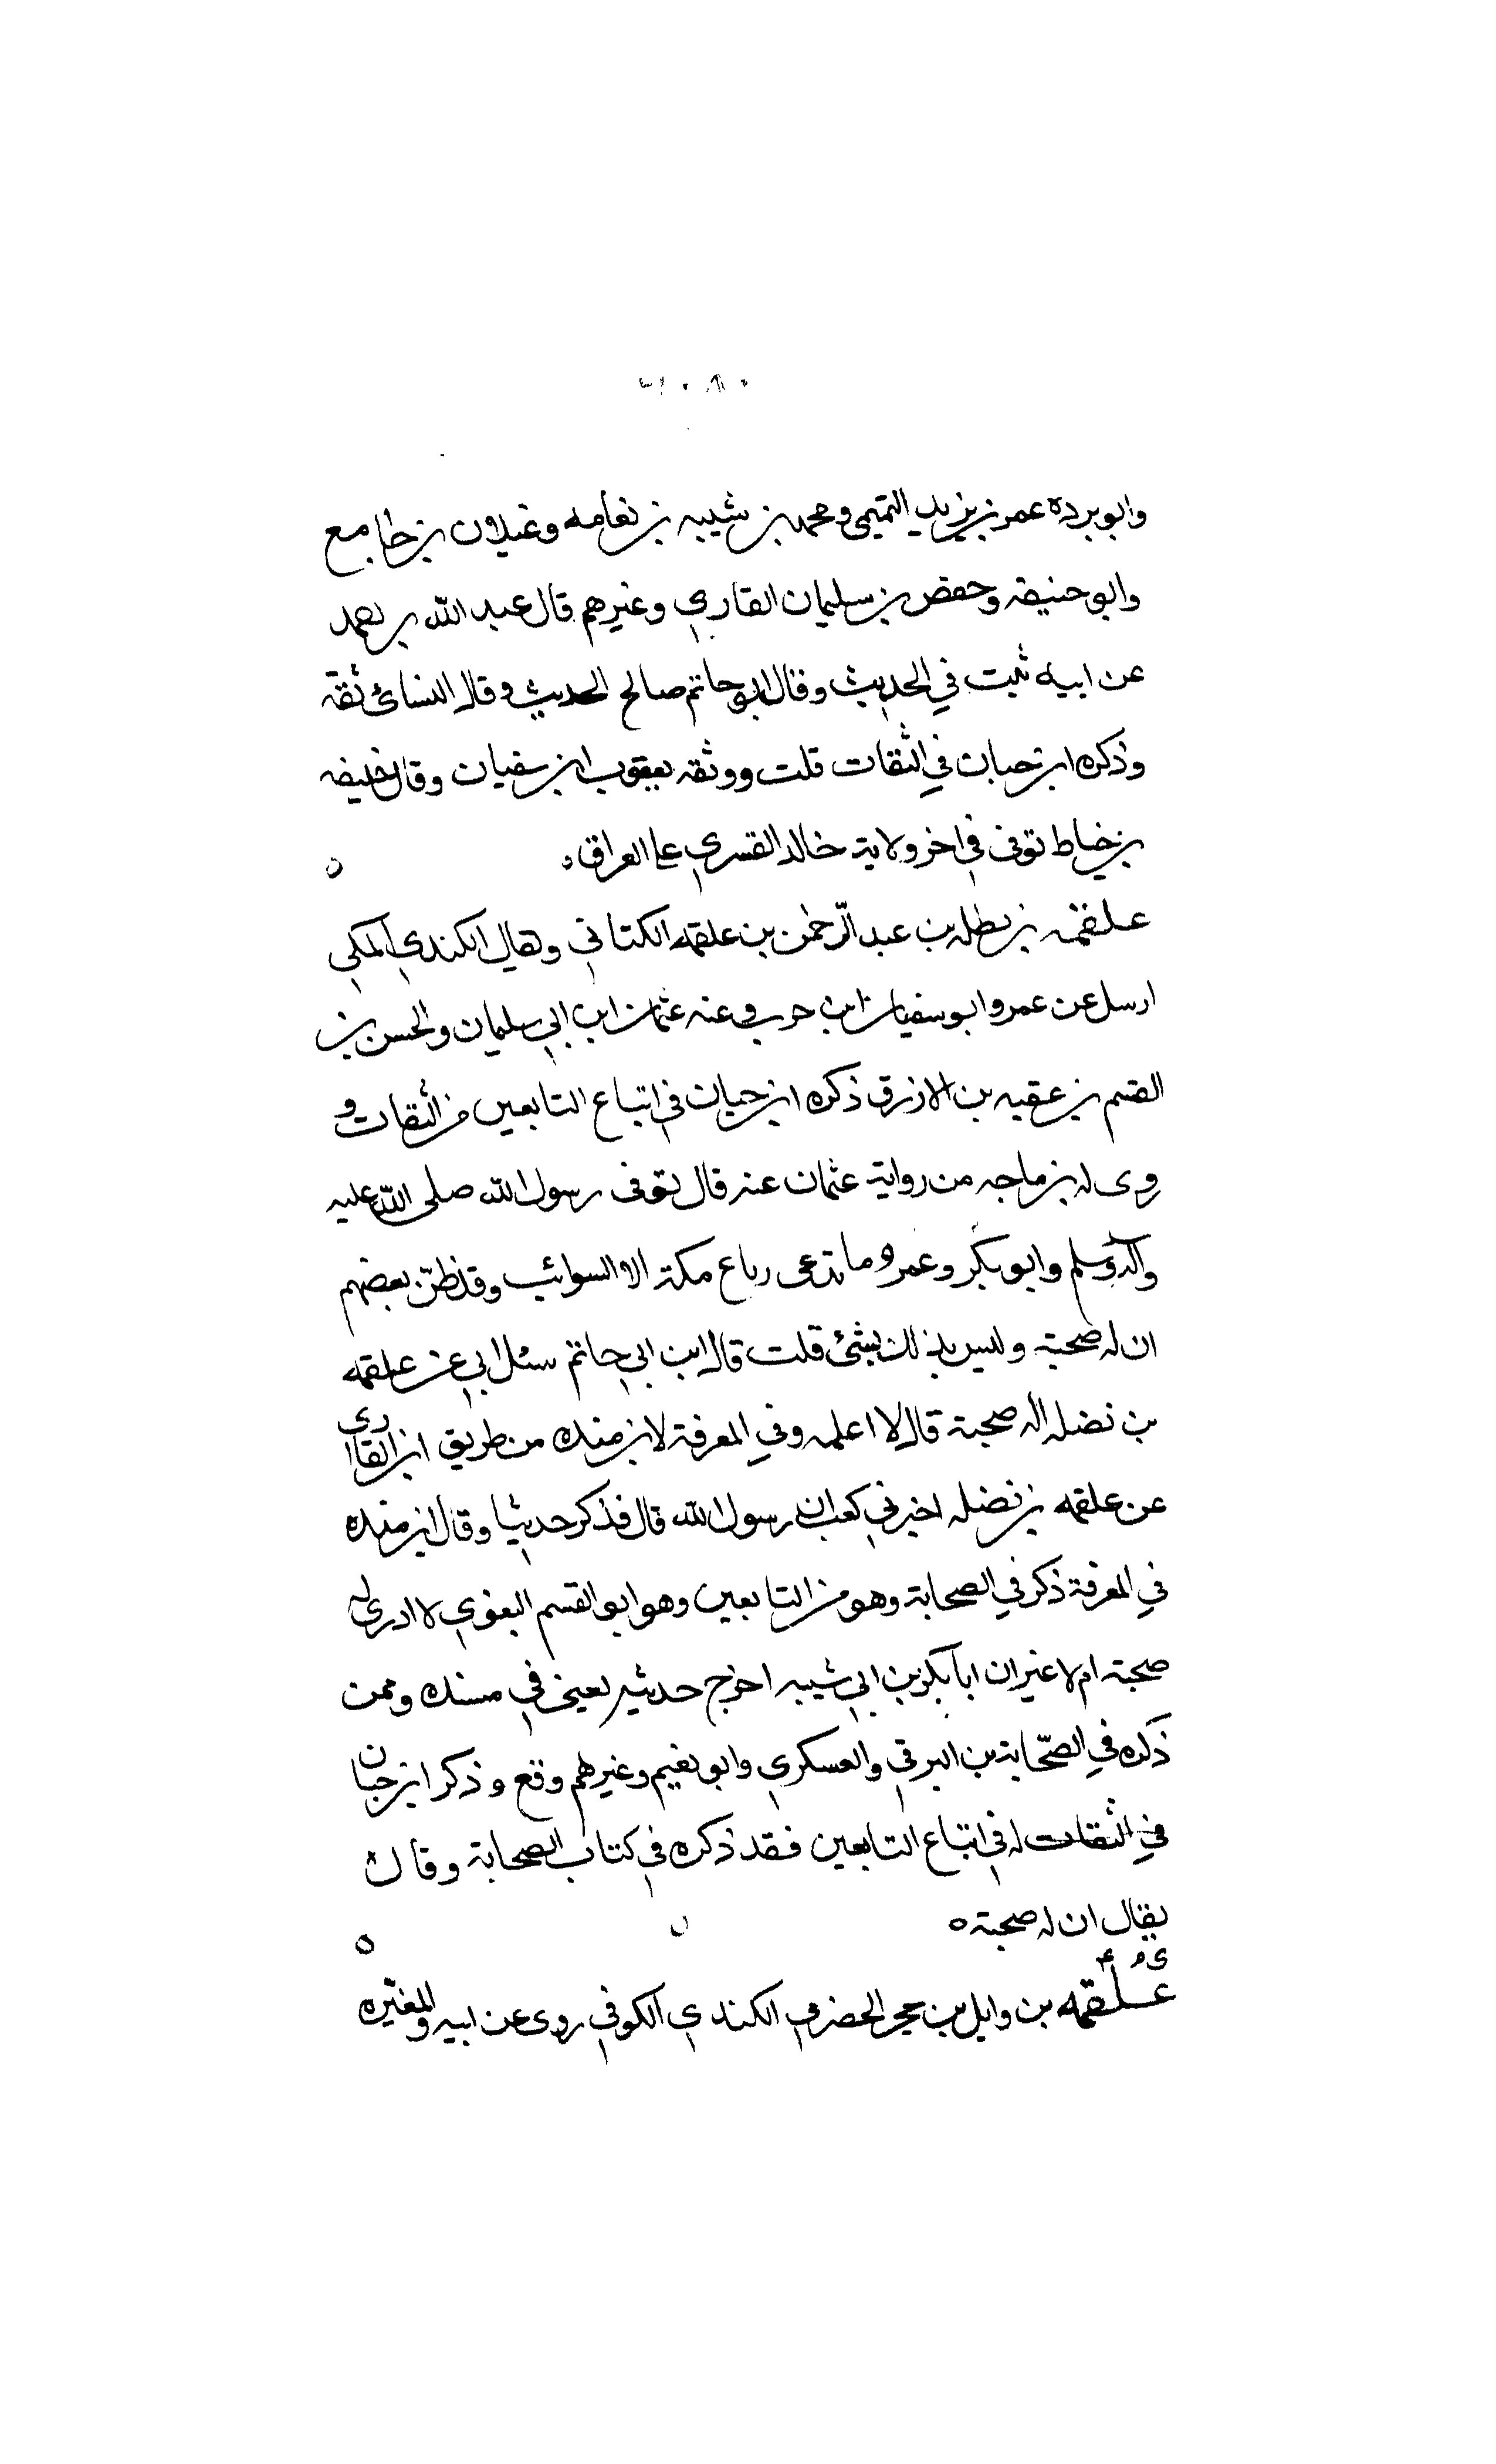 وابو برده عمر بن يزيد التميمي ومحمد بن شيبه بن نعامه وغيلان بن جامع
وابو حنيفه وحفص بن سليمان القاري وغيرهم قال عبد الله بن احمد
عن ابيه ثبت في الحديث وقال ابو حاتم صالح الحديث وقال النسائي ثقة
وذكره ابن حبان في الثقات قلت ووثقه يعقوب ابن سفيان وقال خليفه
بن خياط توفى في اخر ولاية خالد القسري على العراق ه
علقمه بن نضله بن عبد الرحمن بن علقمه الكناني ويقال الكندي المكي
ارسل عن عمر وابو سفيان ابن حرب وعنه عثمان ابن ابي سليمان والحسن بن
القسم بن عقبه بن الازرق ذكره ابن حبان في اتباع التابعين من الثقات و
روى له بن ماجه من رواية عثمان عنه قال توفى رسول الله صلى الله عليه
وآله وسلم وابو بكر وعمر وما تدعى رباع مكة الا السوائب وقد ظن بعضهم
ان له صحبة وليس بذلك بشئ قلت قال ابن ابي حاتم سئل ابي عن علقمه
بن نضله اله صحبة قال لا اعلمه وفي المعرفة لابن منده من طريق ابن القاري
عن علقمه بن نضله اخبرني كعب ان رسول الله قال فذكر حديثا وقال ابن منده
في المعرفة ذكر في الصحابة وهو من التابعين وهو ابو القسم البغوي لا ادري له
صحبة ام لا غير ان ابا بكر بن ابي شيبه اخرج حديثه يعني في مسنده وممن
ذكره في الصحابة بن البرقي والعسكري وابو نعيم وغيرهم وقع وذكر ابن حبان
في الثقات له في اتباع التابعين فقد ذكره في كتاب الصحابة وقال
يقال ان له صحبة ه
علقمه بن وايل بن حجر الحضرمي الكندي الكوفي روى عن ابيه والمغيره